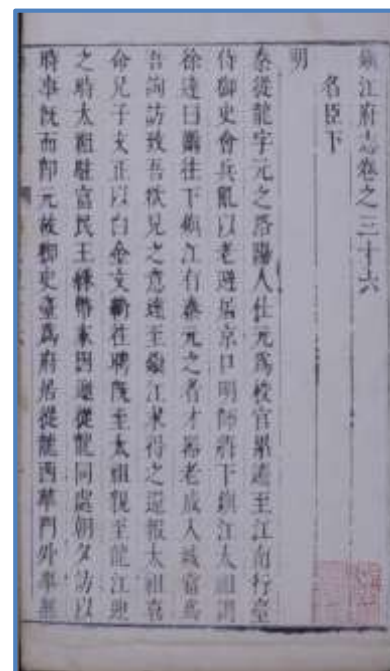 鎮江府志卷之三十六
名臣下
明
秦從龍字元之洛陽人仕元爲校官累遷至江南行臺
侍御史會兵亂以老避居京口明師將下鎮江太祖謂
徐達曰爾往下鎮江有秦元之者才器老成入城當爲
吾詢訪致吾欲見之意達至鎮江果得之還報太祖喜
命兄子文正以白金文綺往聘既至太祖親至龍江迎
之時太祖駐富民王綵帛家因邀從龍同處朝夕訪以
時事既而即元故御史臺爲府居從龍西華門外事無